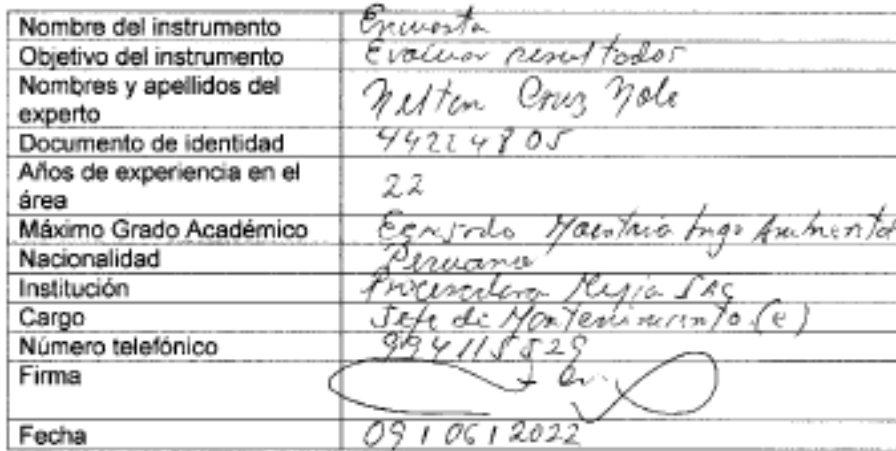 Nombre del instrumento Encuesta
Objetivo del instrumento Evaluar resultados
Nombres y apellidos del
experto Cruz Nole
Documento de identidad
Años de experiencia en el
área 22
Máximo Grado Académico Egresado Maestria Ing. Ambiental
Nacionalidad Peruano
Institución Procesadora Mejia SAC
Cargo Jefe de Mantenimiento (e)
Número telefónico 994115529
Firma
Fecha 09 / 06 / 2022